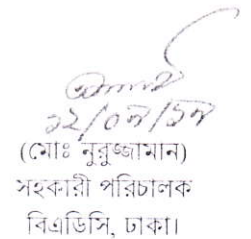 ১২/০৭/১৭
(মোঃ নুরুজ্জামান)
সহকারী পরিচালক
বিএডিসি, ঢাকা।